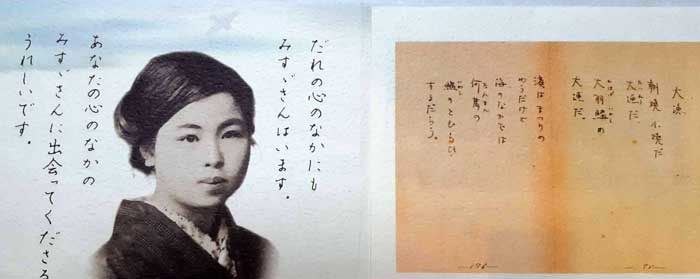 だれの心のなかにも
みすゞさんはいます。
あなたの心のなかの
みすゞさんに出会ってくださる
うれしいです。
大漁
朝焼小焼だ
大漁だ。
大羽鰮の
大漁だ。
濱はまつりの
やうだけど
海のなかでは
何萬の
鰮のとむらひ
するだらう。